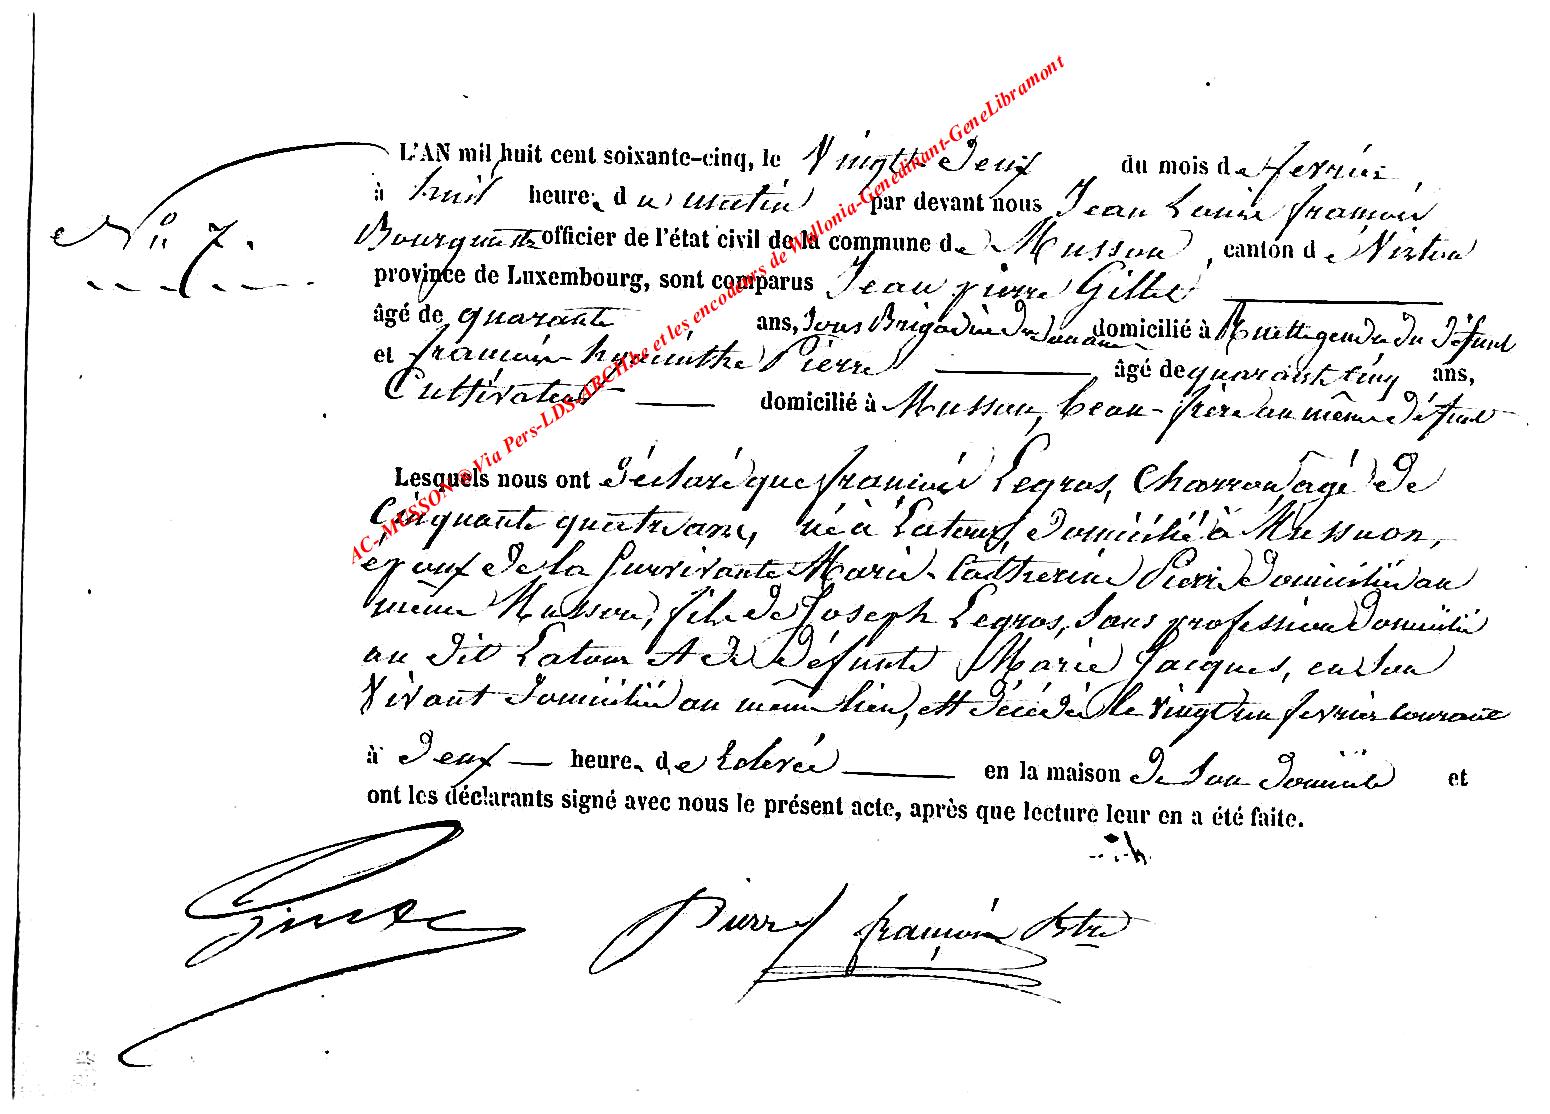 L'AN mil huit cent soixante-cinq, le Vingt deux du mois de fevrier
à huit heure, du matin par devant nous Jean Louis françois
N° 7. Bourguette officier de l'état civil de la commune de Musson, canton de Virton
province de Luxembourg, sont comparus Jean pierre Gillet
âgé de quarante ans, Sous Brigadier de douane domicilié à Ruette gendre du défunt
et françois hyacinthe Pierre âgé de quarante cinq ans,
Cultivateur domicilié à Musson, beau-frère au même défunt
Lesquels nous ont déclaré que françois Legros, Charron âgé de
Cinquante quatre ans, né à Latour, domicilié à Musson,
epoux de la Survivante Marie-Catherine Pierre domiciliée au
même Musson, fils de Joseph Legros, Sans profession domicilié
au dit Latour et de défunte Marie Jacques, en son
Vivant domiciliée au même lieu, est décédé le vingt un fevrier courant
à deux heure, de relevée en la maison de son domicile et
ont les déclarants signé avec nous le présent acte, après que lecture leur en a été faite.
Pierre françois
AC-MUSSON @ Via Pers-LDS-ARCHbe et les encodeurs de Wallonia-Genedinant-GeneLibramont